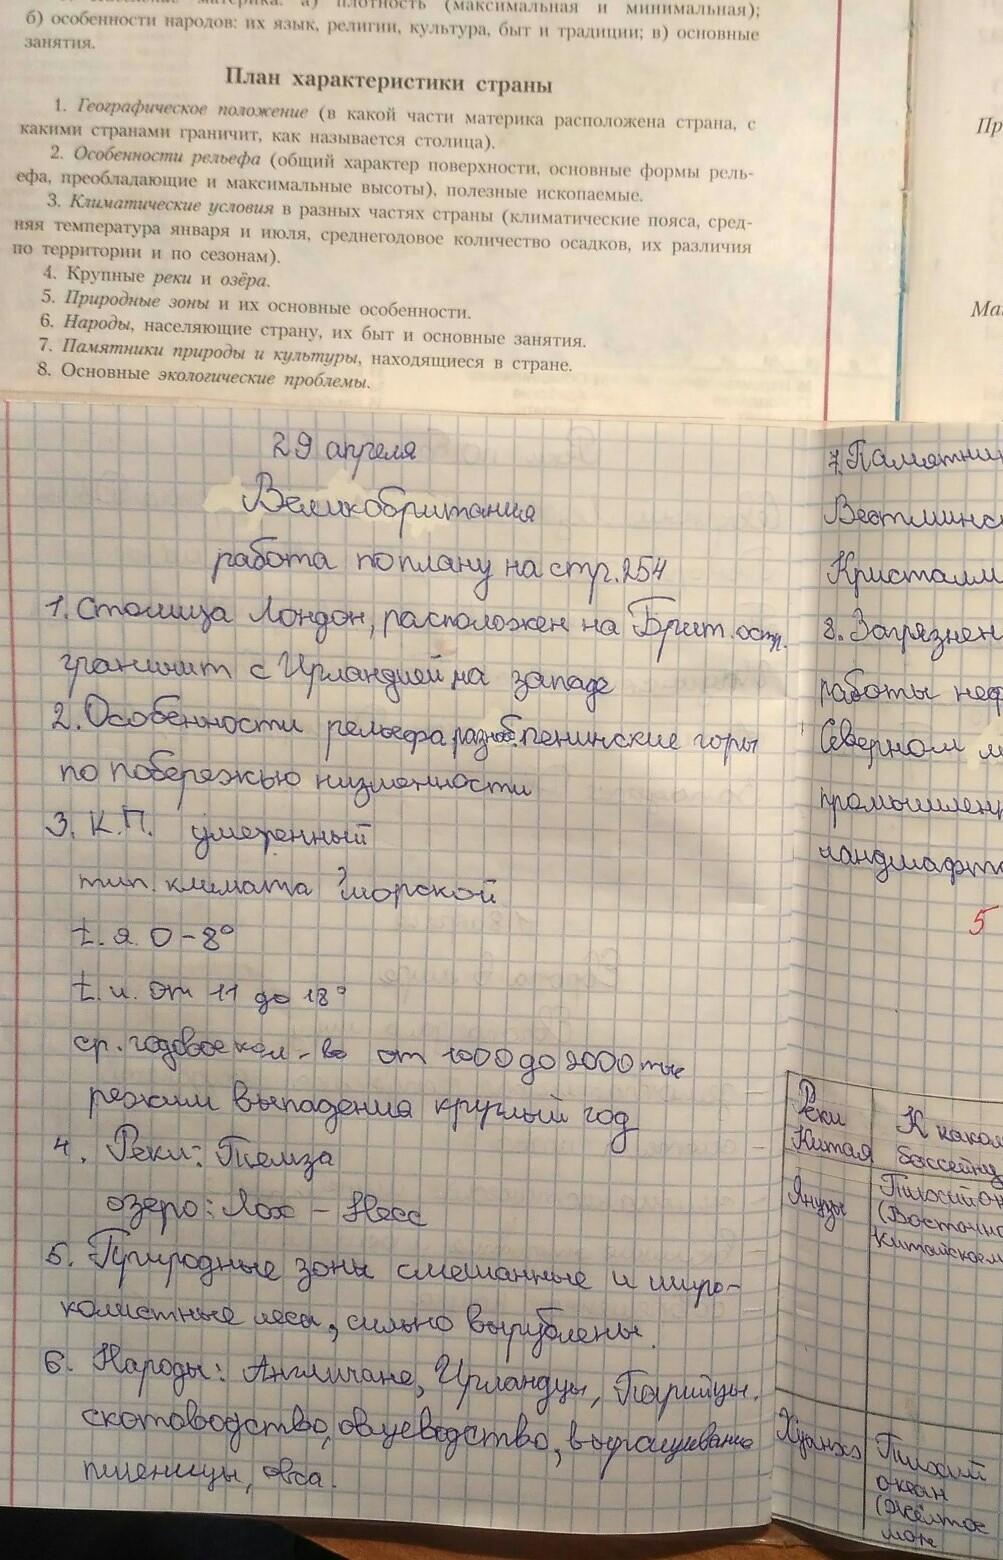 (максимальная и минимальная);
б) особенности народов: их язык, религии, культура, быт и традиции; в) основные
занятия.
План характеристики страны
1. Географическое положение (в какой части материка расположена страна, с
какими странами граничит, как называется столица).
2. Особенности рельефа (общий характер поверхности, основные формы рель-
ефа, преобладающие и максимальные высоты), полезные ископаемые.
3. Климатические условия в разных частях страны (климатические пояса, сред-
няя температура января и июля, среднегодовое количество осадков, их различия
по территории и по сезонам).
4. Крупные реки и озёра.
5. Природные зоны и их основные особенности.
6. Народы, населяющие страну, их быт и основные занятия.
7. Памятники природы и культуры, находящиеся в стране.
8. Основные экологические проблемы.
Пр
Ма
29 апреля
Великобритания
работа по плану на стр. 254
1. Столица Лондон, расположен на Брит. остр.
граничит с Ирландией на западе
2. Особенности рельефа разноб. пенинские горы
по побережью низменности
3. К.П. умеренный
тип. климата морской
t. я. 0-8°
t. и. от 11 до 18°
ср. годовое кол-во от 1000 до 2000 тыс
режим выпадения круглый год
4. Реки: Темза
озеро: Лох-Несс
5. Природные зоны смешанные и широ-
колистные леса, сильно вырублены.
6. Народы: Англичане, Ирландцы,
скотоводство, овцеводство, выращивание
пшеницы, овса.
7. Памятни
Вестминс
Кристалл
8. Загрязнен
работы неф
Северном м
промышлен
ландшафт
5
Реки Китая
К какому бассейну
Янцзы
Тихий ок
(Восточно
Китайское м
Хуанхэ
Тихий
океан
(Жёлтое
море